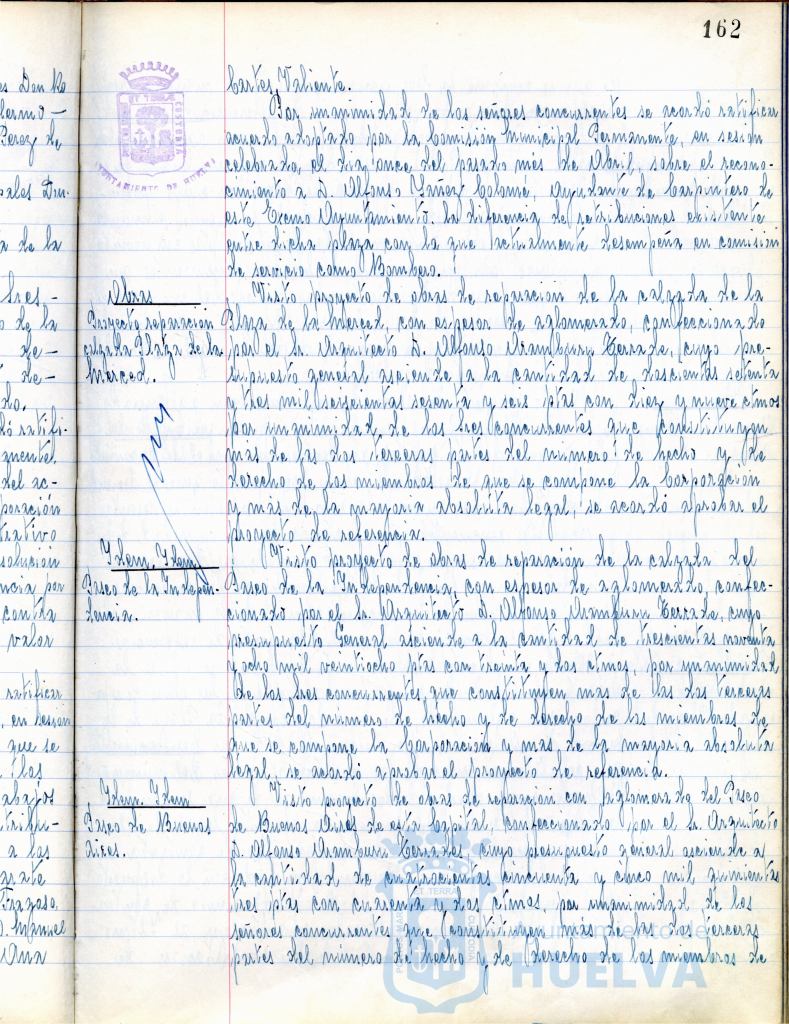 162
Cortes Valiente.
Por unanimidad de los señores concurrentes se acordó ratificar
acuerdo adoptado por la Comisión Municipal Permanente, en sesión
celebrada, el dia once del pasado mes de Abril, sobre el recono-
cimiento a D. Alfonso Yañez Colomé, Ayudante de Carpintero de
este Excmo Ayuntamiento. la diferencia de retribuciones existente
entre dicha plaza con la que actualmente desempeña en comisión
de servicio como Bombero.
Obras
Proyecto reparación
calzada Plaza de la
Merced.
Visto proyecto de obras de reparación de la calzada de la
Plaza de la Merced, con espesor de aglomerado, confeccionado
por el Sr. Arquitecto D. Alfonso Aramburu Terrade, cuyo pre-
supuesto general asciende a la cantidad de doscientas setenta
y tres mil seiscientas sesenta y seis ptas con diez y nueve ctmos
por unanimidad de los Sres concurrentes que constituyen
más de las dos terceras partes del número de hecho y de
derecho de los miembros de que se compone la Corporación
y más de la mayoria absoluta legal, se acordó aprobar el
proyecto de referencia.
Idem. Idem
Paseo de la Indepen-
dencia.
Visto proyecto de obras de reparación de la calzada del
Paseo de la Independencia, con espesor de aglomerado confec-
cionado por el Sr. Arquitecto D. Alfonso Aramburu Terrade, cuyo
presupuesto General asciende a la cantidad de trescientas noventa
y ocho mil veintiocho ptas con treinta y dos ctmos, por unanimidad
de los Sres concurrentes, que constituyen mas de las dos terceras
partes del número de hecho y de derecho de los miembros de
que se compone la Corporación y mas de la mayoria absoluta
legal, se acordó aprobar el proyecto de referencia.
Idem. Idem
Paseo de Buenos
Aires.
Visto proyecto de obras de reparación con aglomerado del Paseo
de Buenos Aires de esta Capital, confeccionado por el Sr. Arquitecto
D. Alfonso Aramburu Terrades cuyo presupuesto general asciende a
la cantidad de cuatrocientas cincuenta y cinco mil quinientas
tres ptas con cuarenta y dos ctmos, por unanimidad de los
señores concurrentes que constituyen mas de las dos terceras
partes del número de hecho y de Derecho de los miembros de
AYUNTAMIENTO DE HUELVA
Ayuntamiento de
HUELVA